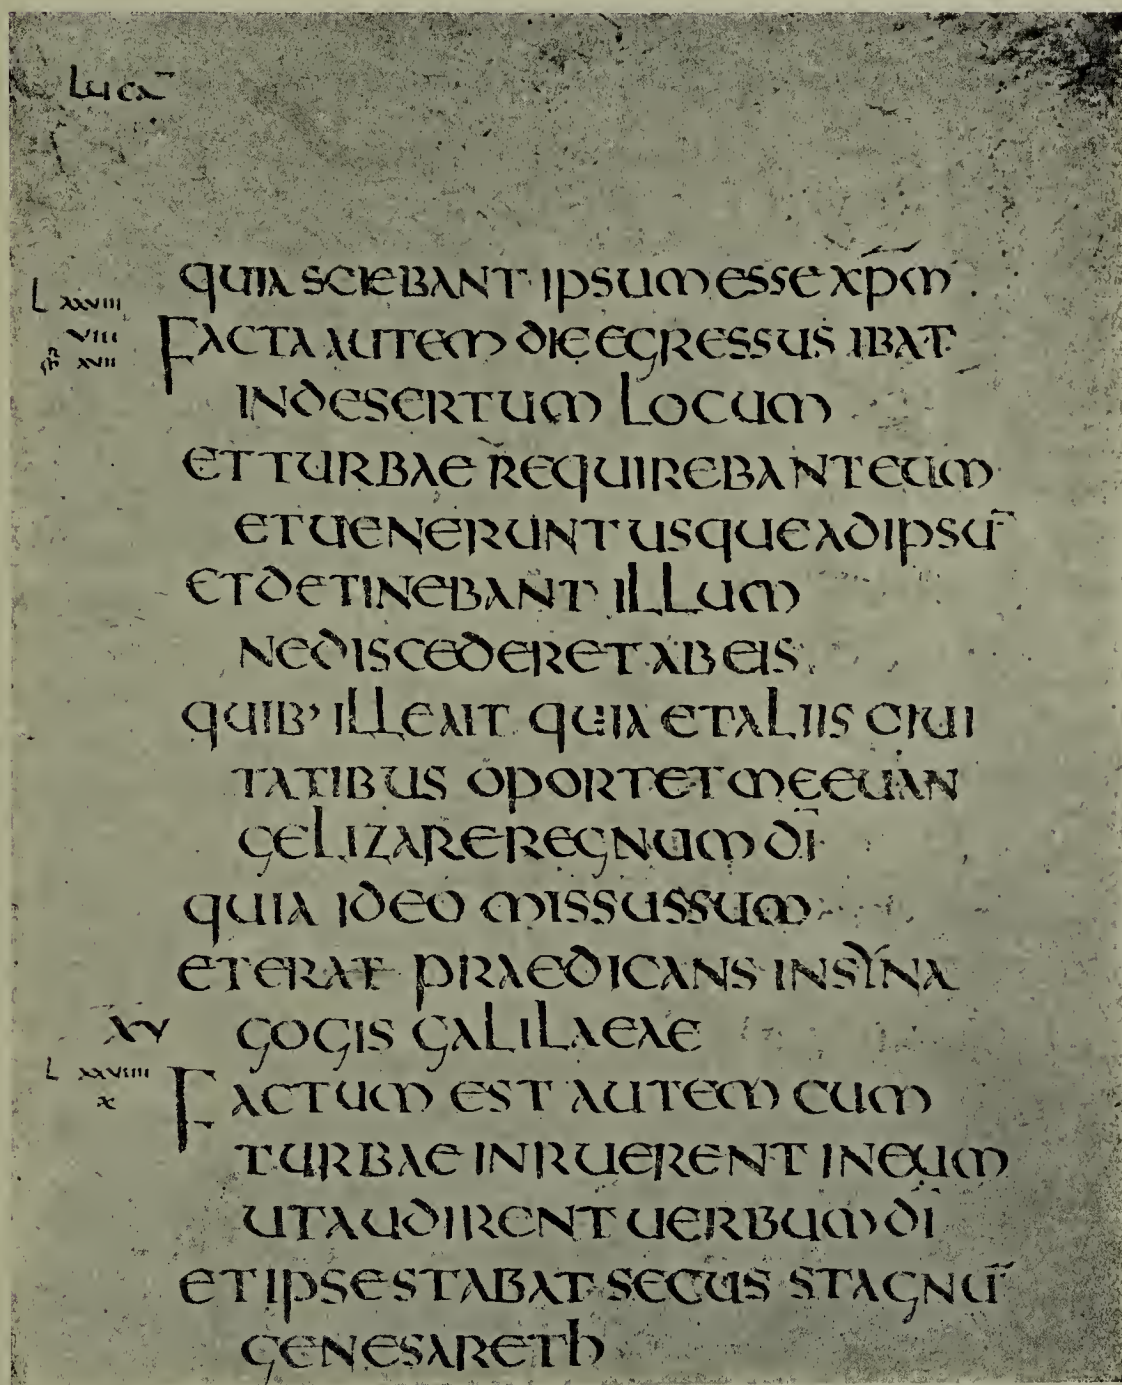 Lucā
QUIA SCIEBANT IPSUM ESSE XP̄M
L XXVIII
VIII
XVII
FACTA AUTEM DIE EGRESSUS IBAT
IN DESERTUM LOCUM
ET TURBAE REQUIREBANT EUM
ET UENERUNT USQUE AD IPSŪ
ET DETINEBANT ILLUM
NE DISCEDERET AB EIS
QUIB' ILLE AIT QUIA ET ALIIS CIUI
TATIBUS OPORTET ME EUAN
GELIZARE REGNUM D̄I
QUIA IDEO MISSUS SUM
ET ERAT PRAEDICANS IN SYNA
XV GOGIS GALILAEAE
L XXVIIII
X
FACTUM EST AUTEM CUM
TURBAE INRUERENT IN EUM
UT AUDIRENT UERBUM D̄I
ET IPSE STABAT SECUS STAGNŪ
GENESARETH